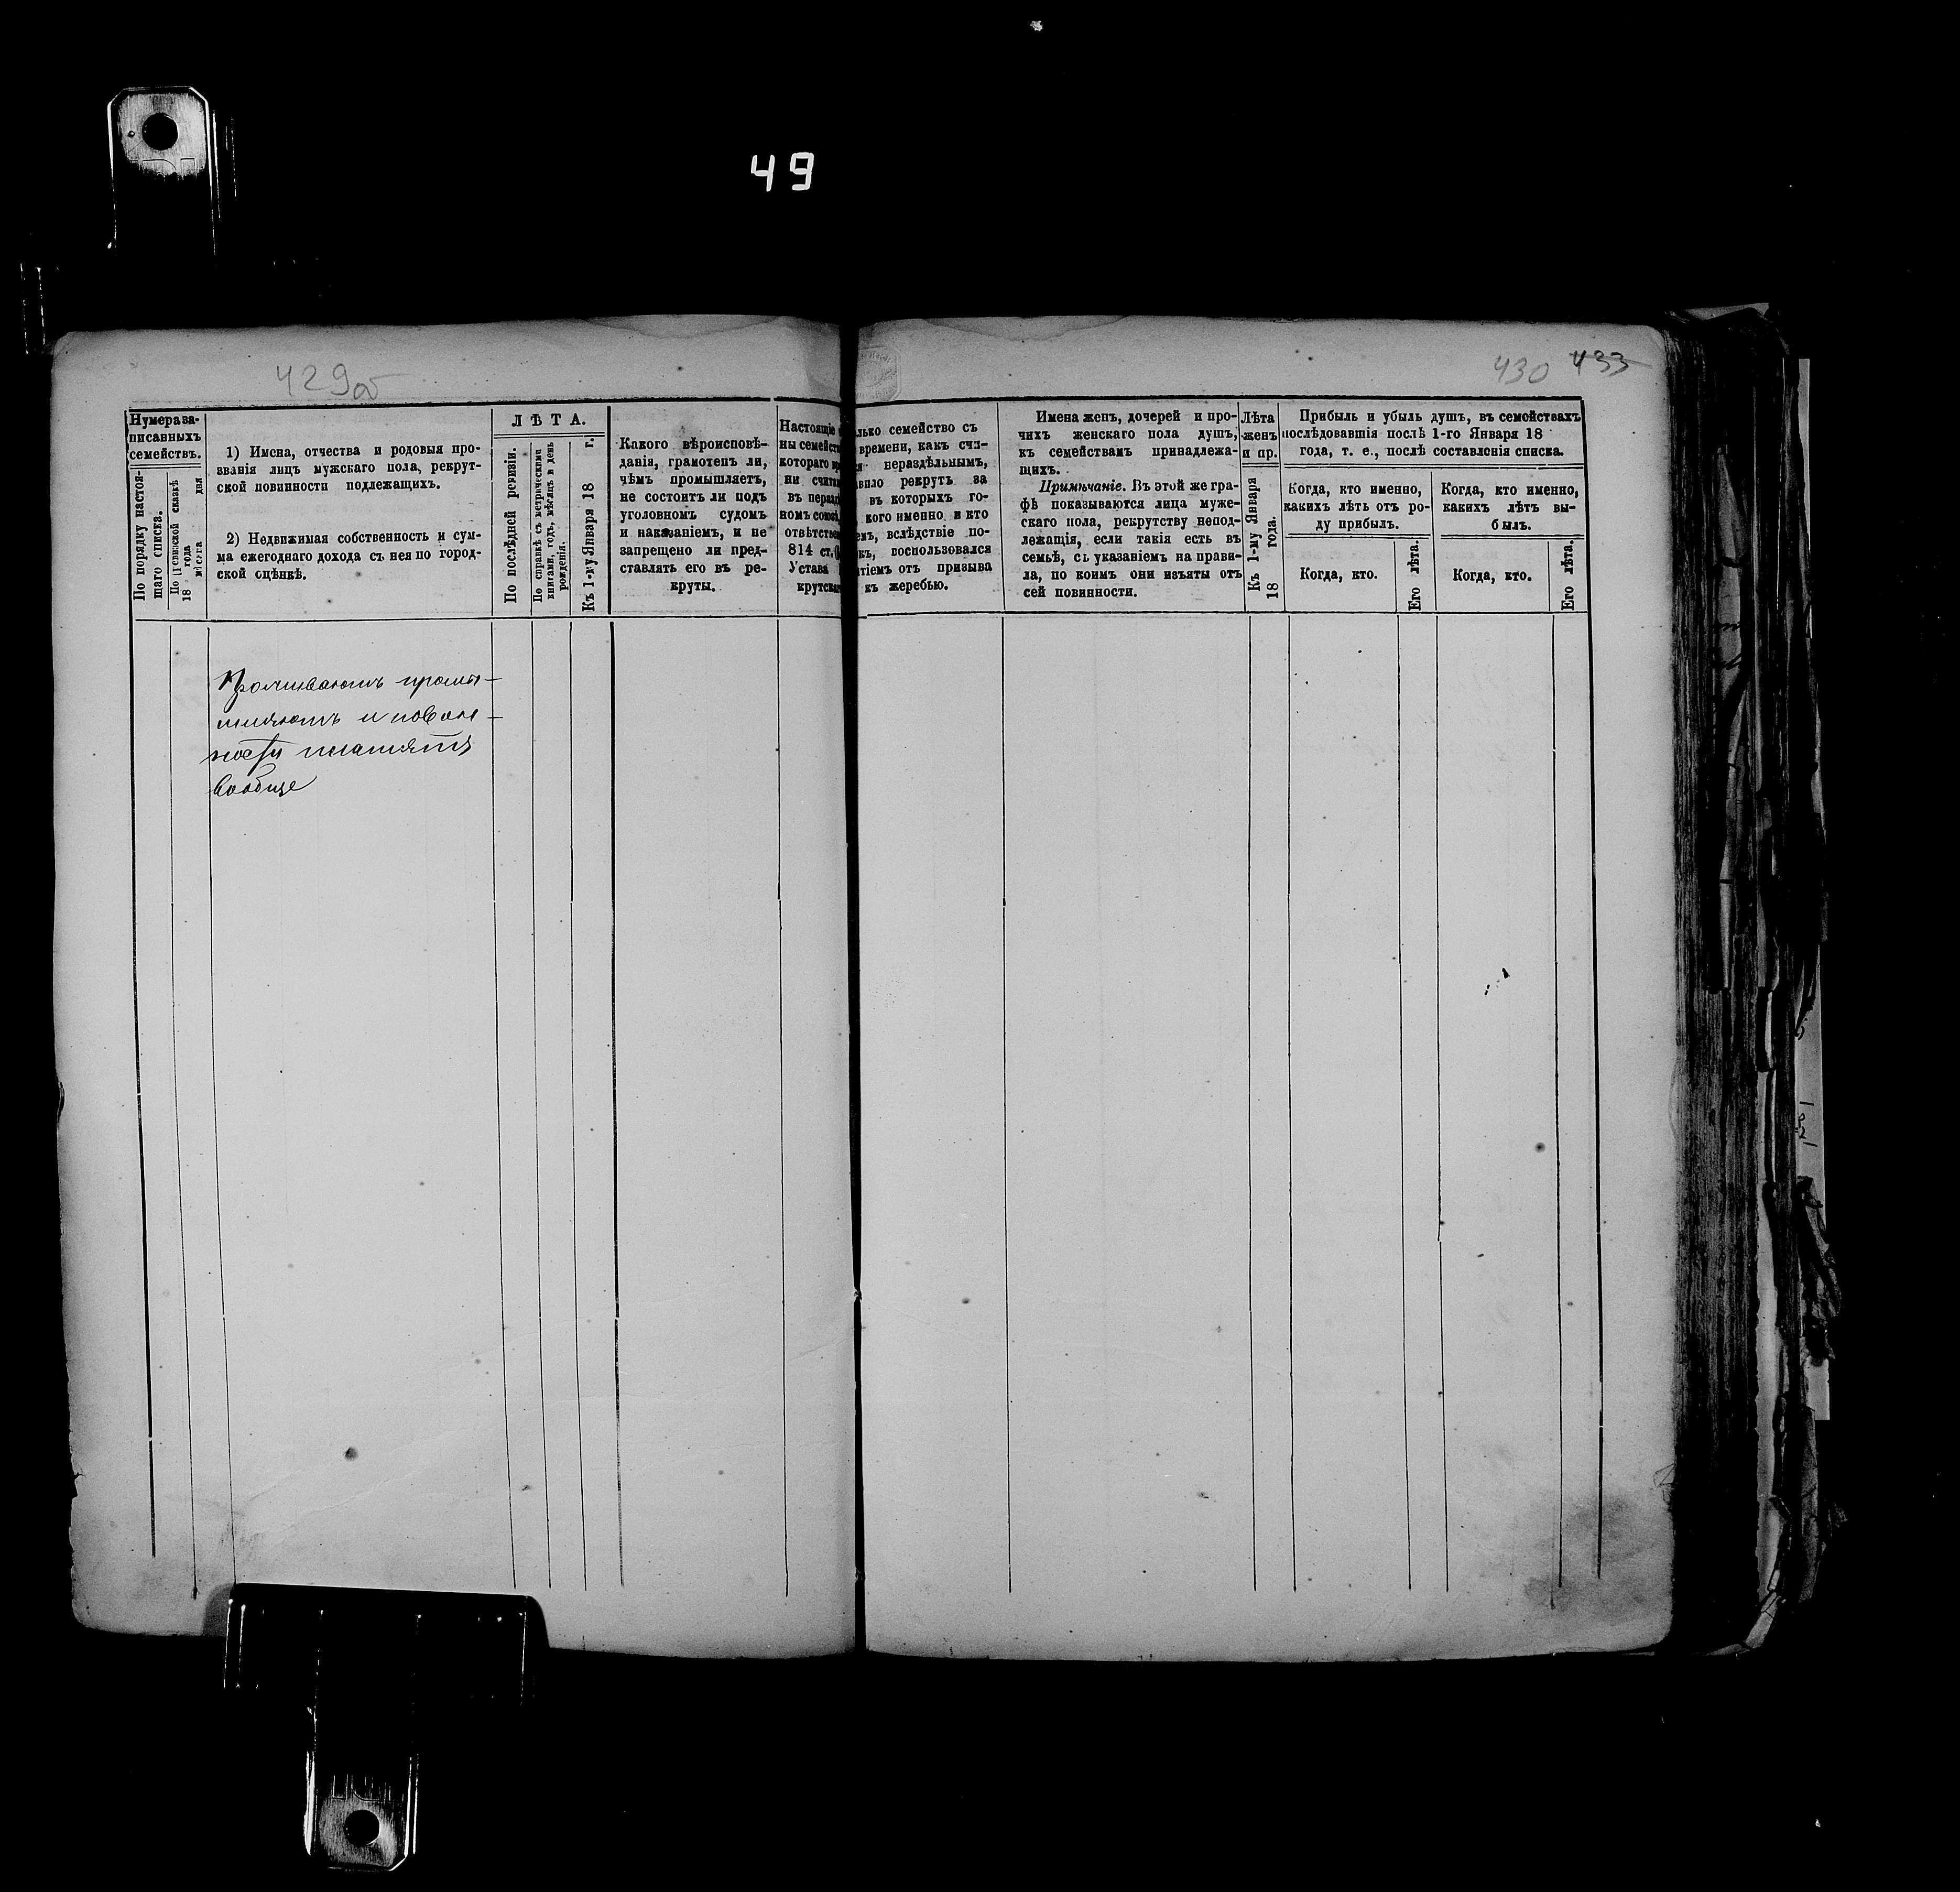 49
429об
430 433
Нумера за-
писанныхъ
семействъ.
По порядку настоя-
щаго списка.
По Ревизской сказкѣ
18 года
мѣсяца дня
1) Имена, отчества и родовыя про-
званія лицъ мужскаго пола, рекрут-
ской повинности подлежащихъ.
2) Недвижимая собственность и сум-
ма ежегоднаго дохода съ нея по город-
ской оцѣнкѣ.
ЛѢТА.
По послѣдней ревизіи.
По справкѣ съ метрическими
книгами, годъ, мѣсяцъ и день
рожденія.
Къ 1-му Января 18 г.
Какого вѣроисповѣ-
данія, грамотенъ ли,
чѣмъ промышляетъ,
не состоитъ ли подъ
уголовномъ судомъ
и наказаніемъ, и не
запрещено ли пред-
ставлять его въ ре-
круты.
Настоящіе
ны семейств
котораго вр
ни счита
въ неразд
номъ союз
отвѣтстве
814 ст.
Устава
крутска
лько семейство съ
времени, какъ счи-
я нераздѣльнымъ,
авило рекрутъ за
въ которыхъ го-
кого именно и кто
емъ, вслѣдствіе по-
къ, воспользовался
тіемъ отъ призыва
къ жеребью.
Имена женъ, дочерей и про-
чихъ женскаго пола душъ,
къ семействамъ принадлежа-
щихъ.
Примѣчаніе. Въ этой же гра-
фѣ показываются лица муже-
скаго пола, рекрутству непод-
лежащія, если такія есть въ
семьѣ, съ указаніемъ на прави-
ла, по коимъ они изъяты отъ
сей повинности.
Лѣта
женъ
и пр.
Къ 1-му Января
18 года.
Прибыль и убыль душъ, въ семействахъ
послѣдовавшія послѣ 1-го Января 18
года, т. е., послѣ составленія списка.
Когда, кто именно,
какихъ лѣтъ отъ ро-
ду прибылъ.
Когда, кто.
Его лѣта.
Когда, кто именно,
какихъ лѣтъ вы-
былъ.
Когда, кто.
Его лѣта.
Проживаютъ промы-
шляютъ и повин-
ности платятъ
вообще